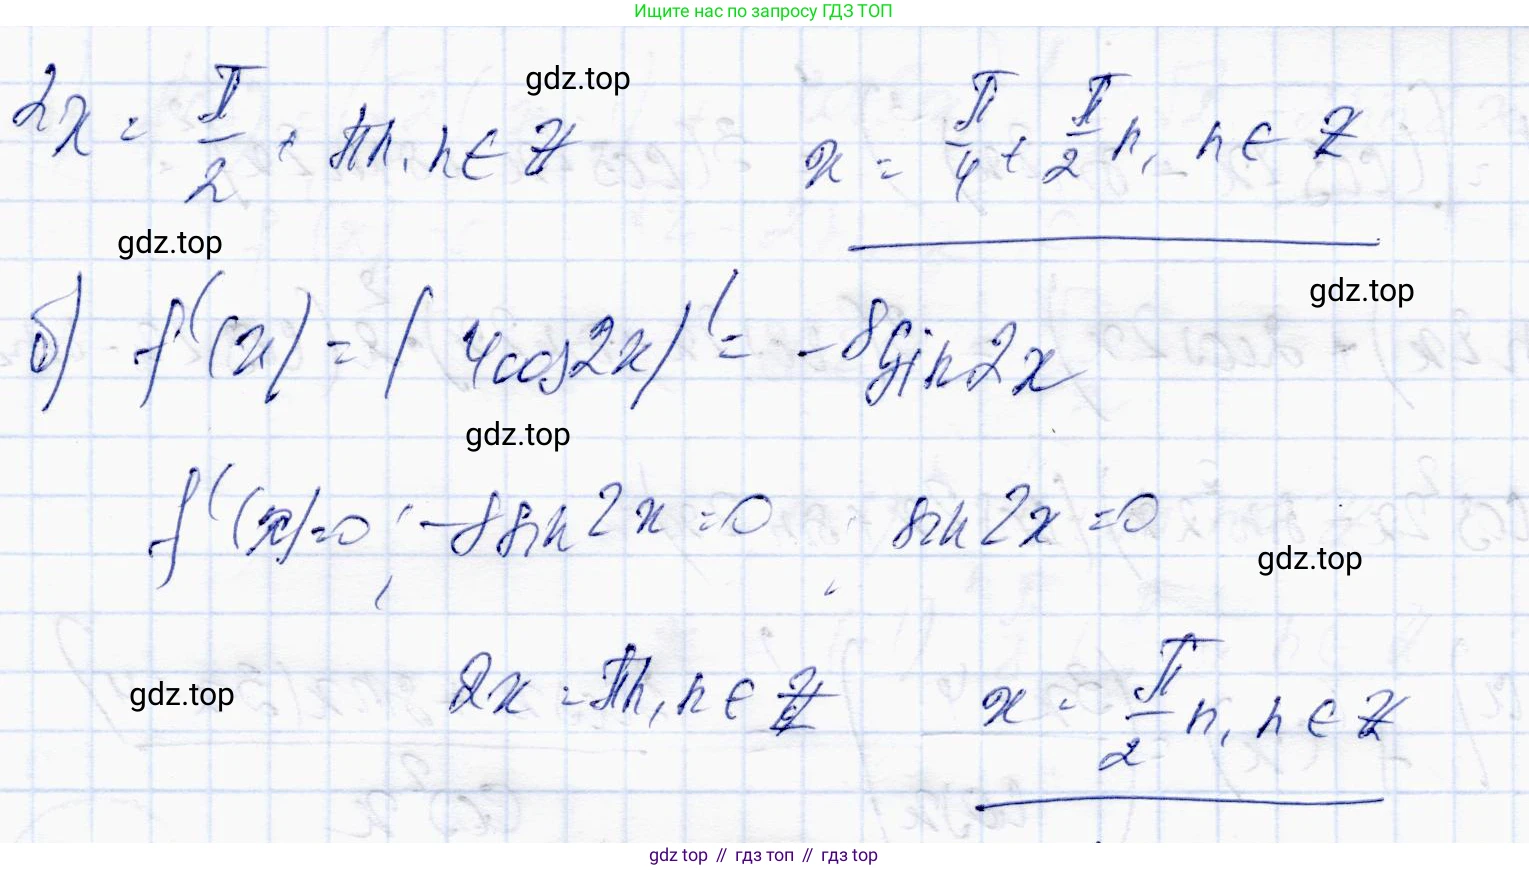 Ищите нас по запросу ГДЗ ТОП
gdz.top
2x = π/2 + πn, n ∈ Z    x = π/4 + π/2 n, n ∈ Z
gdz.top
gdz.top
б) f'(x) = (4cos2x)' = -8sin2x
gdz.top
f'(x)=0; -8sin2x=0; sin2x=0
gdz.top
gdz.top
2x = πn, n ∈ Z    x = π/2 n, n ∈ Z
gdz top // гдз топ // гдз top